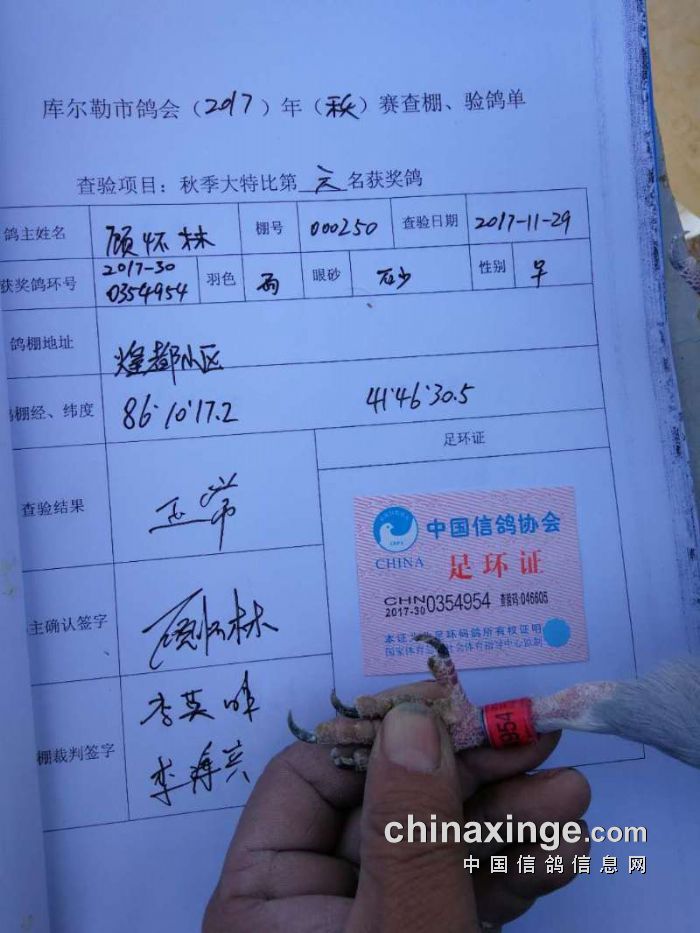 库尔勒市鸽会（2017）年（秋）赛查棚、验鸽单
查验项目：秋季大特比第 六 名获奖鸽
鸽主姓名 顾怀林 棚号 000250 查验日期 2017-11-29
获奖鸽环号 2017-30 0354954 羽色 雨 眼砂 砂 性别
鸽棚地址 小区
棚经、纬度 86°10'17.2 41°46'30.5
足环证
查验结果 正常
中国信鸽协会
CHINA 足环证
CHN
2017-30 0354954 查验码:046605
本证为 足环码鸽所有权证明
国家体育总 社会体育指导中心监制
主确认签字 顾怀林
棚裁判签字 李英
李海
954
chinaxinge.com
中国信鸽信息网